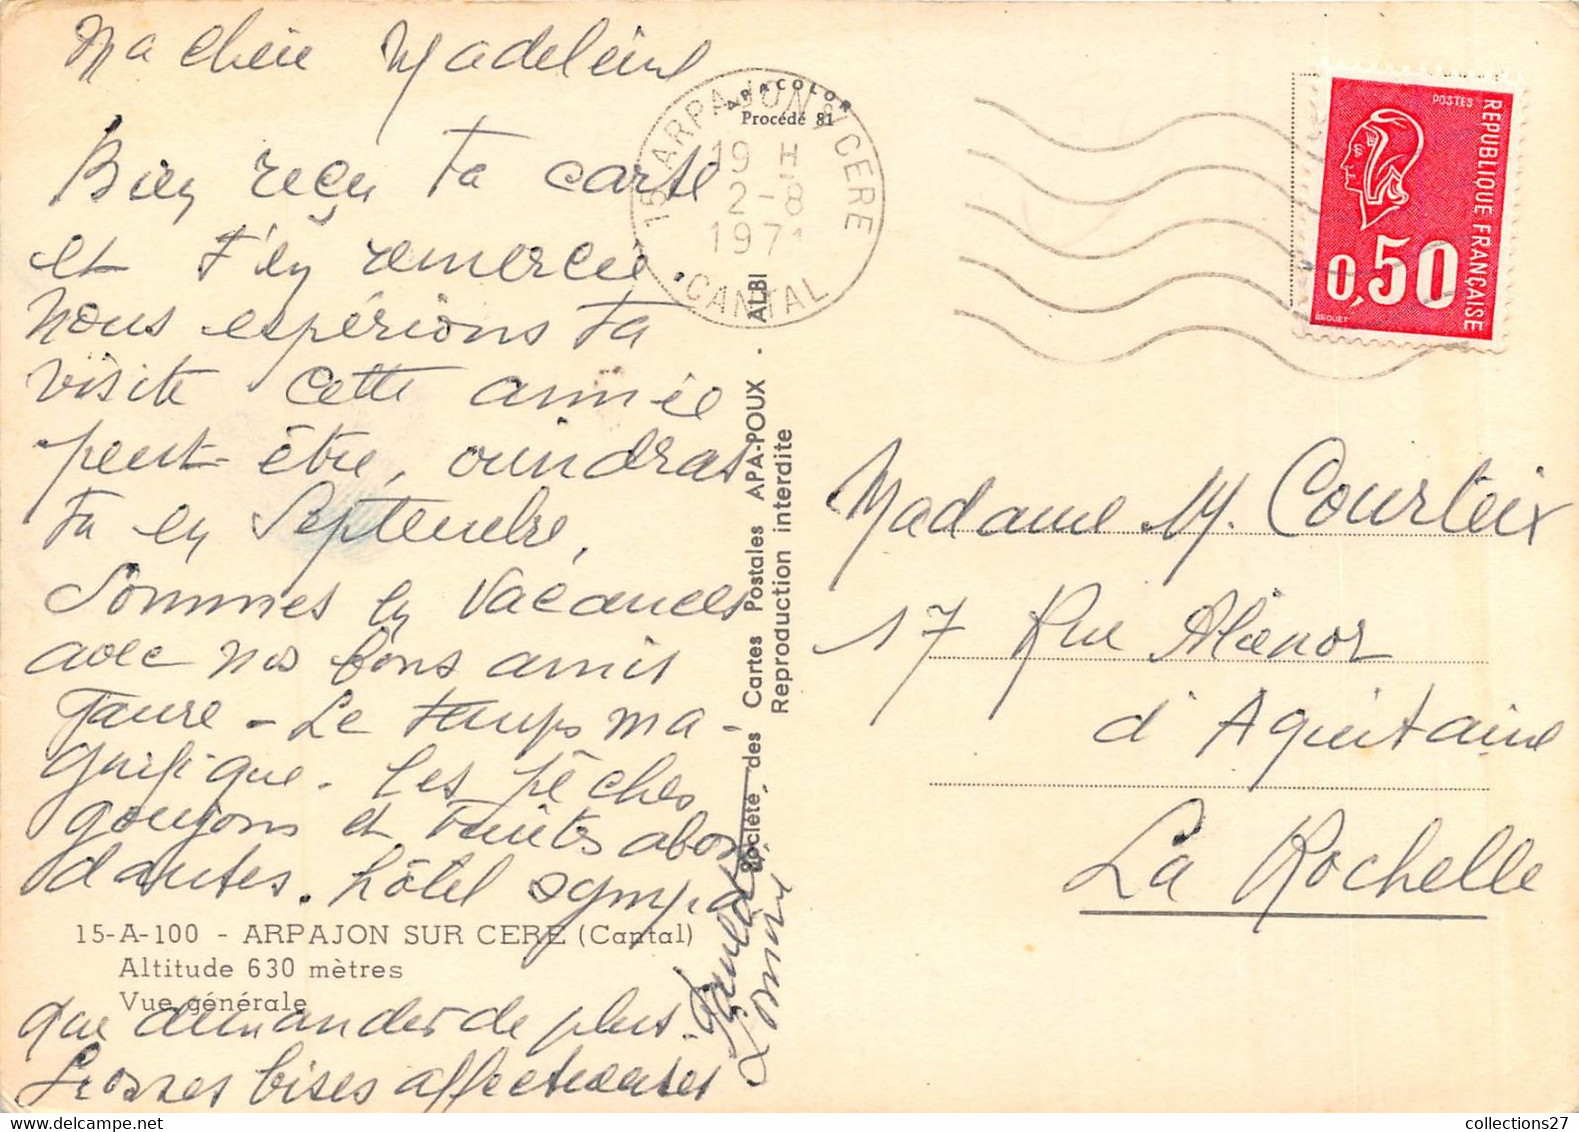 Ma chère Madeleine
Bien reçu ta carte
et t'en remercie
Nous espérions ta
visite cette année
peut-être, viendras
tu en Septembre,
Sommes en Vacances
avec nos bons amis
Faure - Le temps ma-
gnifique. Les pêches
goujons et truites abon
dantes. hôtel sympa
15-A-100 - ARPAJON SUR CERE (Cantal)
Altitude 630 mètres
Vue générale
que demander de plus.
Grosses bises affectueuses
APACOLOR
Procédé 81
15 ARPAJON S/ CERE
19 H
2-8
1971
CANTAL
Société des Cartes Postales APA-POUX - ALBI
Reproduction interdite
POSTES
REPUBLIQUE FRANÇAISE
0,50
BEQUET
Madame M. Courteix
17 Rue Aliénor
d'Aquitaine
La Rochelle
collections27